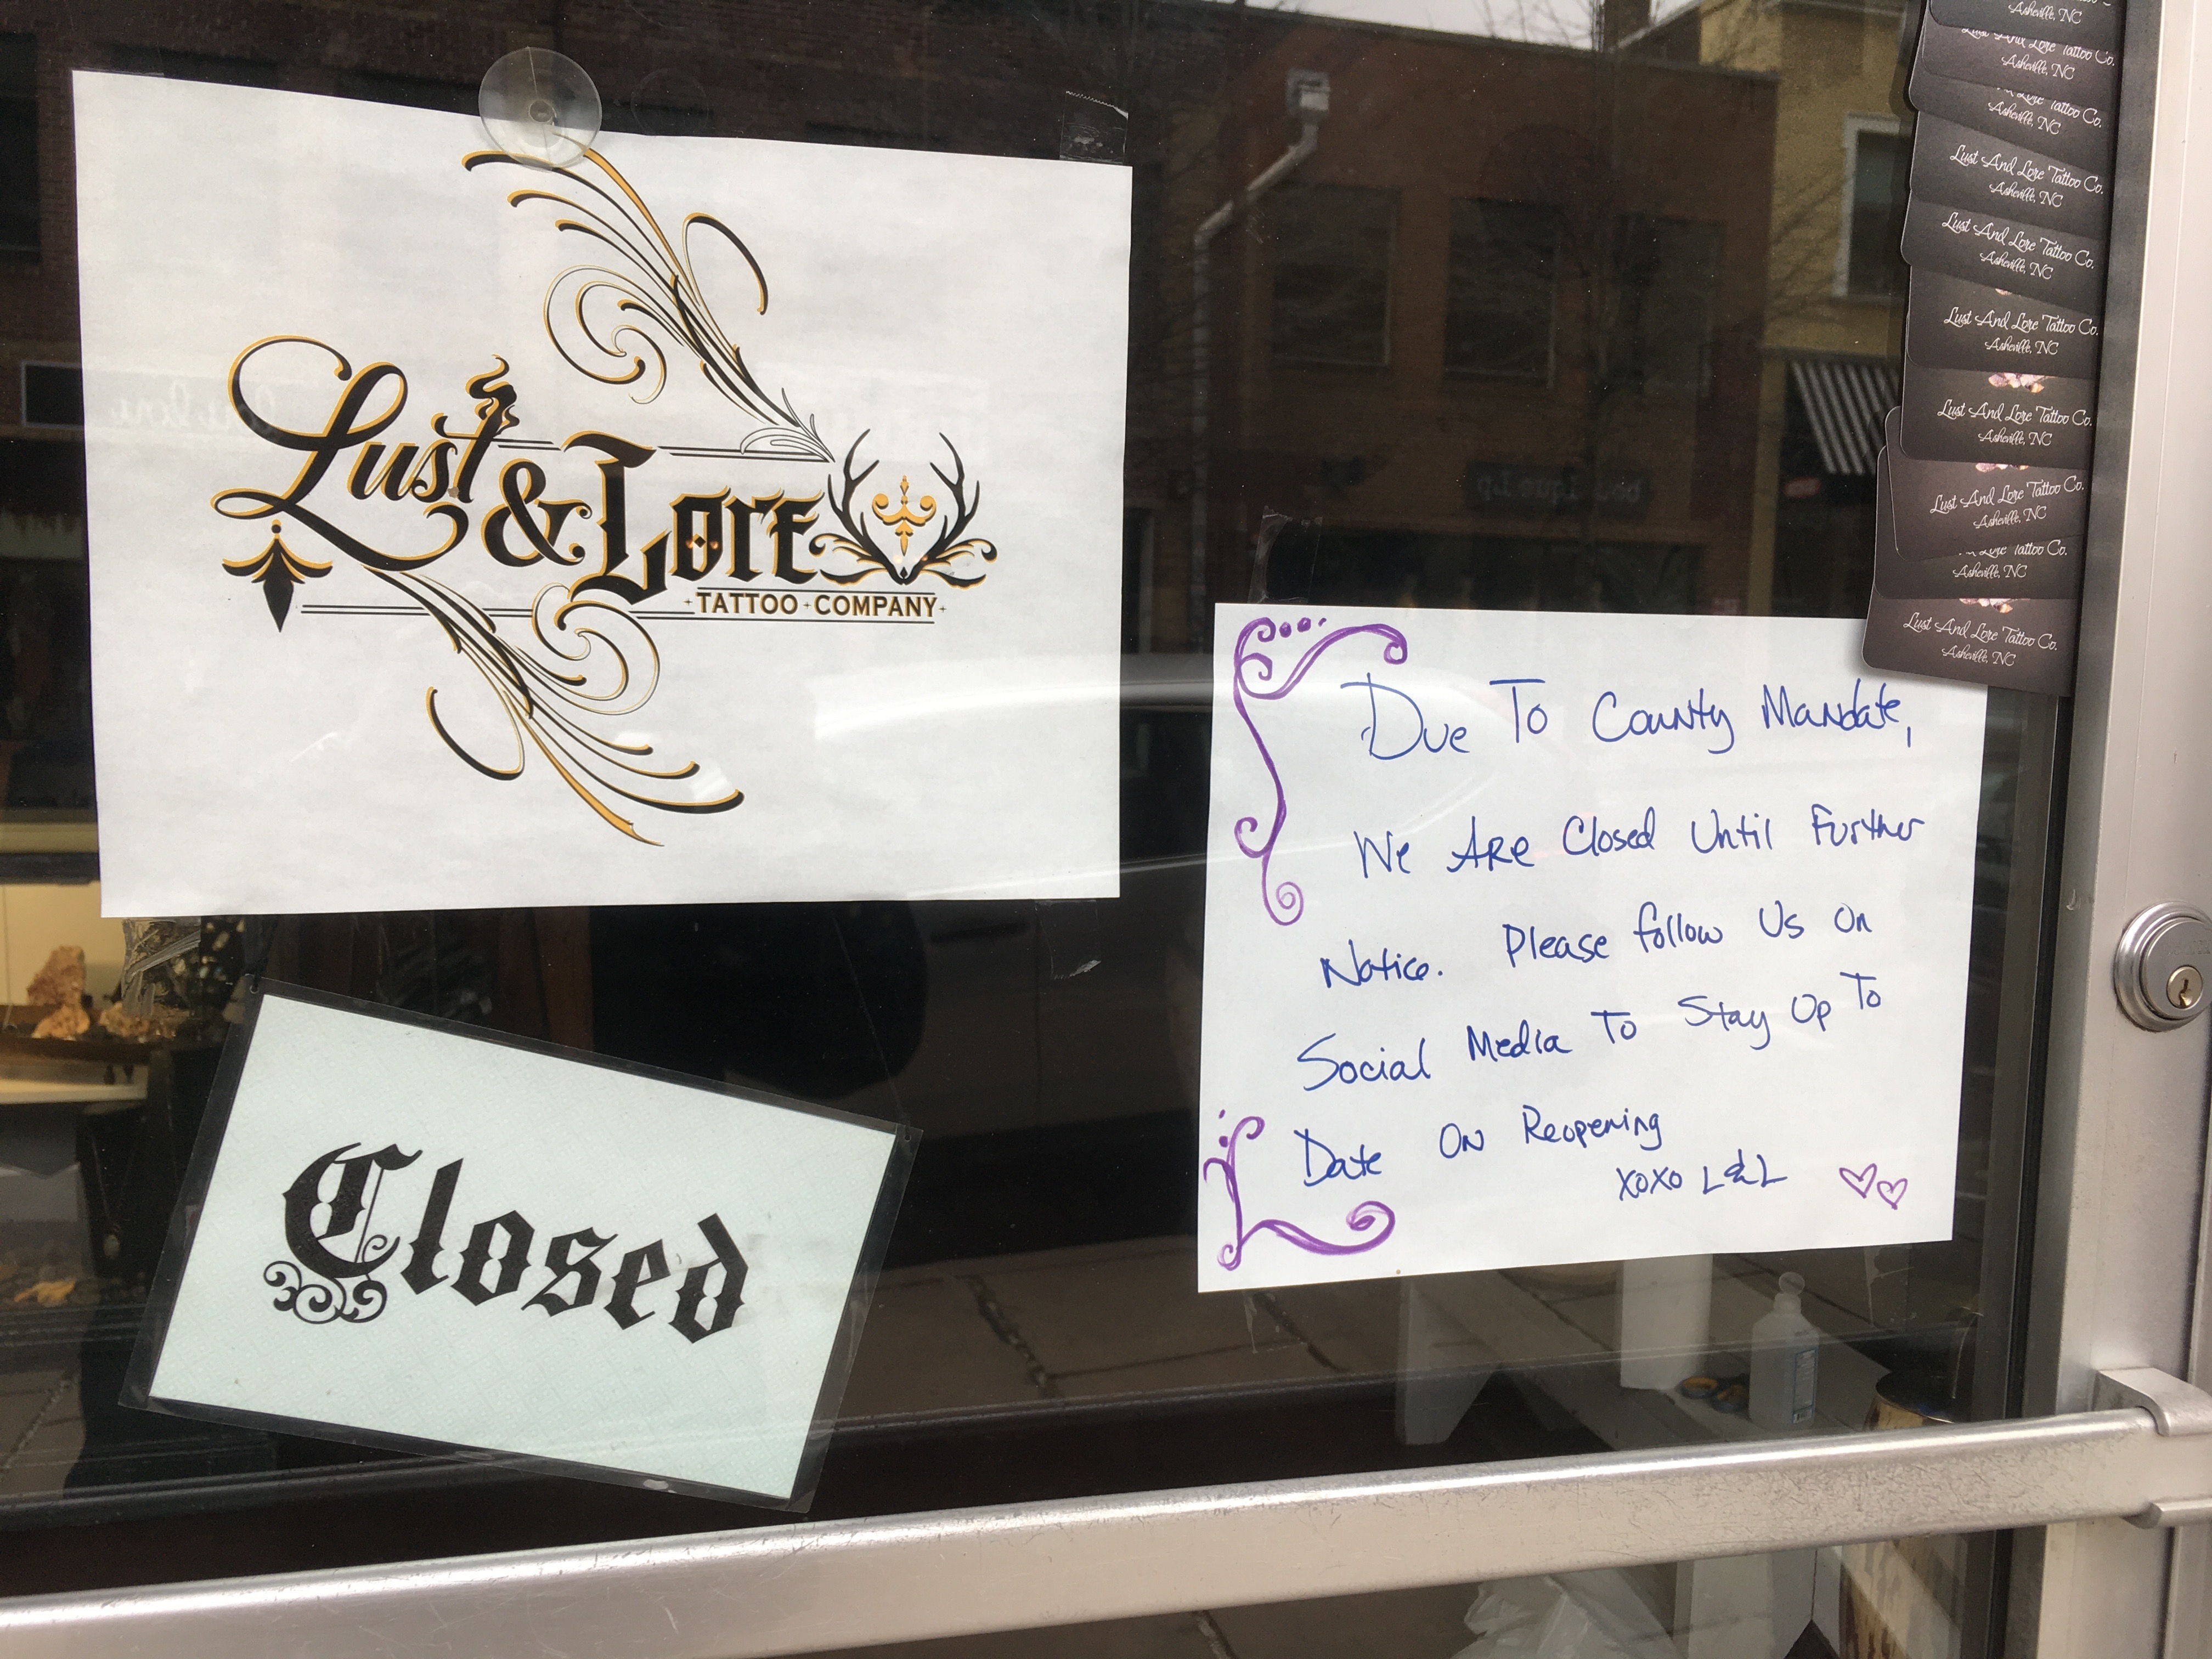 Lust
& Lore
TATTOO COMPANY
Closed
Due To County Mandate,
We Are Closed Until Further
Notice. Please follow Us On
Social Media To Stay Up To
Date On Reopening
XOXO L&L
Asheville, NC
Lust And Lore Tattoo Co.
Asheville, NC
Lore Tattoo Co.
Asheville, NC
Lust And Lore Tattoo Co.
Asheville, NC
Lust And Lore Tattoo Co.
Asheville, NC
Lust And Lore Tattoo Co.
Asheville, NC
Lust And Lore Tattoo Co.
Asheville, NC
Lust And Lore Tattoo Co.
Asheville, NC
Lore Tattoo Co.
Asheville, NC
Lust And Lore Tattoo Co.
Asheville, NC